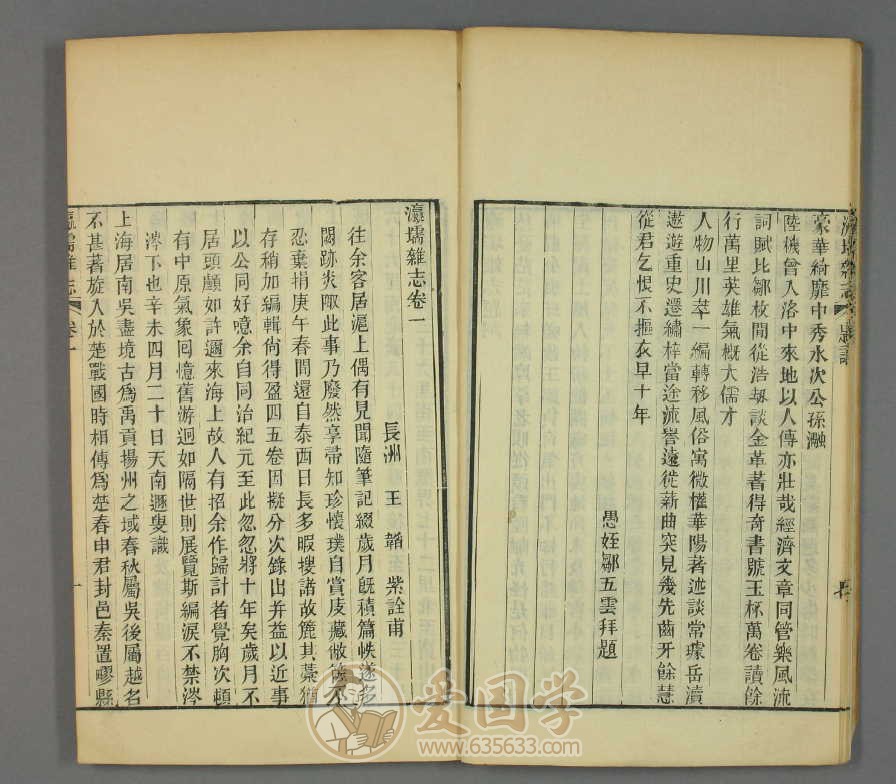 瀛壖雜志 題詞
豪華綺靡中秀水次公孫瀜
陸機曾入洛中來地以人傳亦壯哉經濟文章同管樂風流
詞賦比鄒枚閒從浩刼談金革著得奇書號玉杯萬卷讀餘
行萬里英雄氣概大儒才
人物山川萃一編轉移風俗寓微權華陽著述談常璩岳瀆
遨遊重史遷繡梓當途流譽遠徙薪曲突見幾先齒牙餘慧
從君乞恨不摳衣早十年
愚姪鄒五雲拜題
瀛壖雜志卷一
長洲 王 韜 紫詮甫
往余客居滬上偶有見聞隨筆記綴歲月旣積篇帙遂多
閼跡炎陬此事乃廢然享帚知珍懷璞自賞庋藏敝篋不
忍棄捐庚午春間還自泰西日長多暇搜諸故簏其藁猶
存稍加編輯尚得盈四五卷因擬分次錄出幷益以近事
以公同好噫余自同治紀元至此忽忽將十年矣歲月不
居頭顱如許邇來海上故人有招余作歸計者覺胸次頓
有中原氣象囘憶舊游迥如隔世則展覽斯編淚不禁涔
涔下也辛未四月二十日天南遯叟識
上海居南吳盡境古爲禹貢揚州之域春秋屬吳後屬越名
不甚著旋入於楚戰國時相傳爲楚春申君封邑秦置疁縣
瀛壖雜志 卷一 一
爱国学
www.635633.com